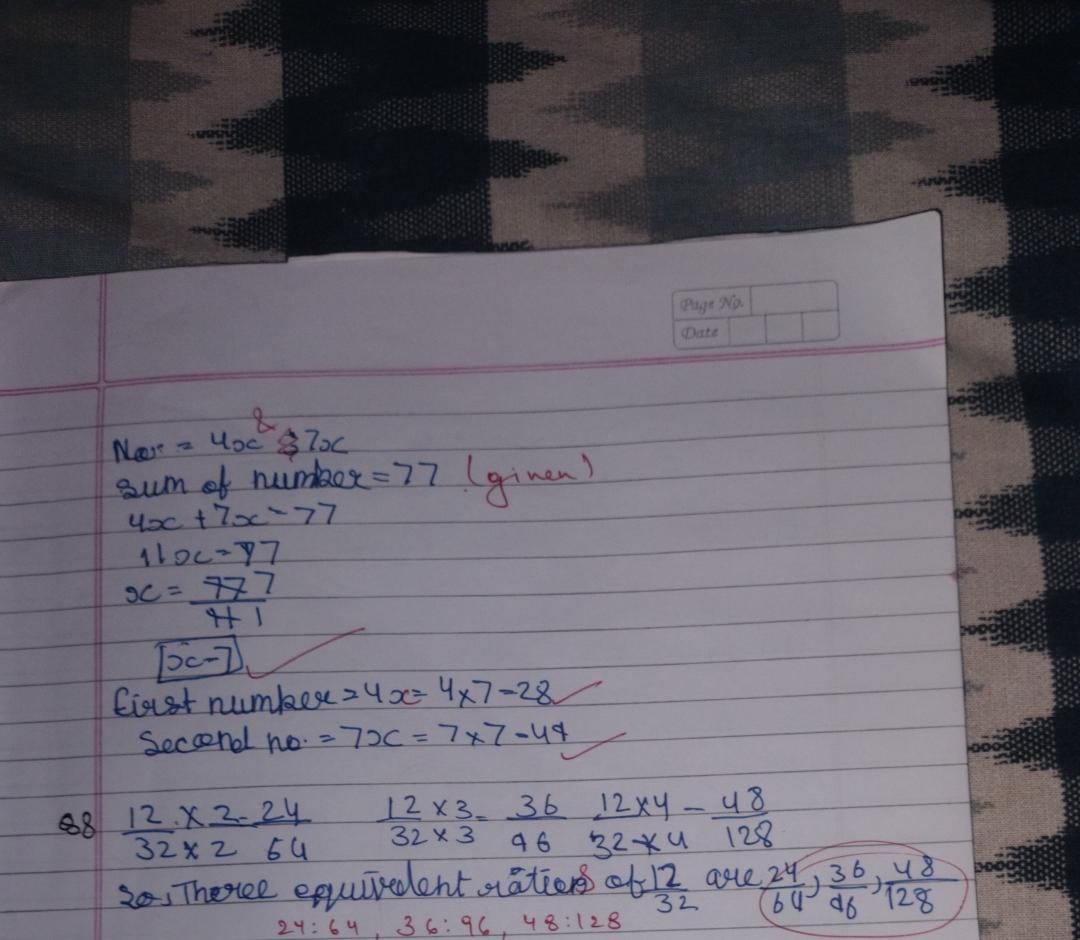 Page No.
Date
Nos = 4x & 7x
Sum of number = 77 (given)
4x + 7x = 77
11x = 77
x = 77 7
11 1
x = 7
first number = 4x = 4 x 7 = 28
Second no. = 7x = 7 x 7 = 49
88 12 x 2 = 24 12 x 3 = 36 12 x 4 = 48
32 x 2 64 32 x 3 96 32 x 4 128
So, Theree equivelent ratios of 12/32 are 24/64, 36/96, 48/128
24:64, 36:96, 48:128